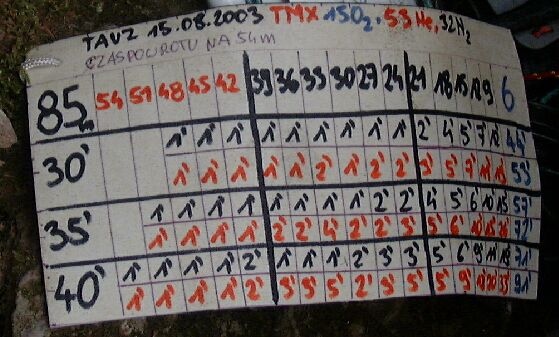 TAUZ 15.08.2003 TMX 15O₂, 53He, 32N₂
CZAS POWROTU NA 54m
85m 54 51 48 45 42 39 36 33 30 27 24 21 18 15 12 9 6
30' 1' 1' 1' 1' 1' 1' 1' 1' 1' 2' 4' 5' 7' 12' 44'
1' 1' 1' 1' 1' 2' 1' 2' 2' 3' 5' 7' 53'
35' 1' 1' 1' 1' 1' 1' 1' 1' 2' 2' 4' 5' 6' 10' 15' 57'
1' 1' 1' 1' 2' 2' 4' 2' 2' 3' 5' 6' 10' 15' 72'
40' 1' 1' 1' 1' 2' 1' 1' 1' 2' 3' 3' 5' 6' 9' 11' 19' 71'
1' 1' 1' 1' 2' 3' 3' 5' 2' 3' 3' 5' 9' 20' 33' 91'